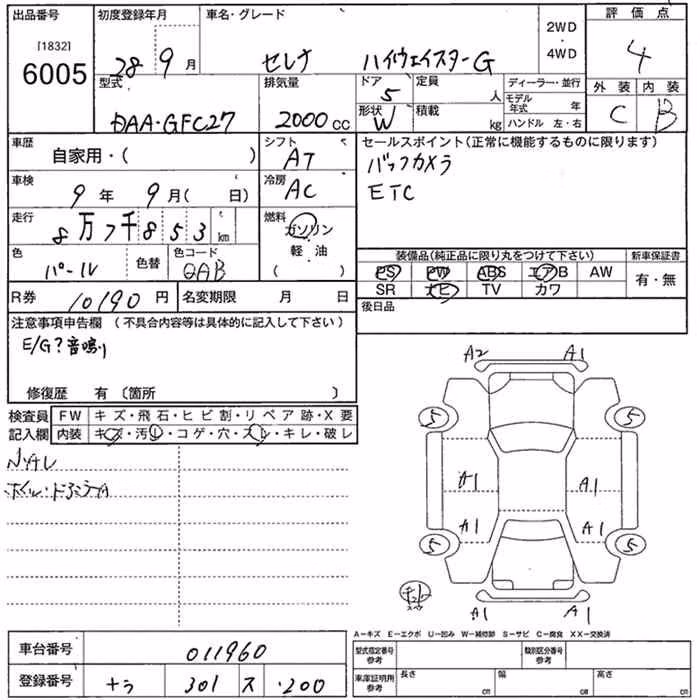 出品番号
[1832]
6005
初度登録年月
28 9 月
車名・グレード
セレナ ハイウェイスターG
2WD
・
4WD
評価点
4
外装 内装
C B
型式
DAA-GFC27
排気量
2000 cc
ドア
5
形状
W
定員
人
積載
kg
ディーラー・並行
モデル年式 年
ハンドル 左・右
車歴
自家用・( )
シフト
AT
車検
9 年 9 月( 日)
冷房
AC
走行
8 万 7 千 8 5 3 km
燃料
ガソリン
・
軽油
( )
色
パール
色替
色コード
QAB
R券
10190 円
名変期限 月 日
セールスポイント(正常に機能するものに限ります)
バックカメラ
ETC
装備品(純正品に限り丸をつけて下さい)
PS PW ABS エアB AW
SR ナビ TV カワ
新車保証書
有・無
後日品
注意事項申告欄 (不具合内容等は具体的に記入して下さい)
E/G?音鳴り
修復歴 有〔箇所 〕
検査員記入欄
FW キズ・飛石・ヒビ割・リペア跡・X要
内装 キズ・汚レ・コゲ・穴・スレ・キレ・破レ
A2 A1
5 5
A1 A1
A1 A1
5 5
A1 A1
A-キズ E-エクボ U-凹み W-補修跡 S-サビ C-腐食 XX-交換済
車台番号
011960
登録番号
ナラ 301 ス ・200
型式指定番号
参考
類別区分番号
参考
車庫証明用
参考
長さ cm
幅 cm
高さ cm